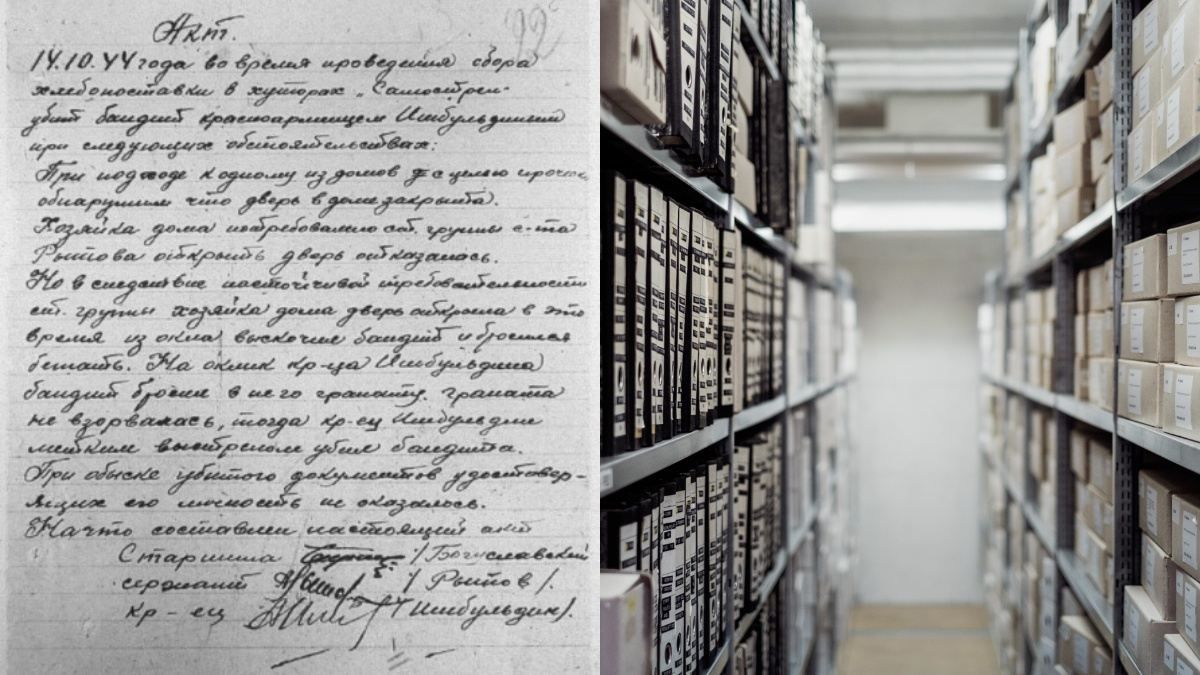 92
Акт.
14.10.44 года во время проведения сбора
хлебопоставки в хуторах „Самострел-
убит бандит красноармейцем Ишбульдиным
при следующих обстоятельствах:
При подходе к одному из домов с целью
обнаружили что дверь в дом закрыта.
Хозяйка дома потребованию ст. группы с-та
Рытова открыть дверь отказалась.
Но в следствие настойчивой требовательности
ст. группы хозяйка дома дверь открыла в это
время из окна выскочил бандит и бросился
бежать. На оклик кр-ца Ишбульдина
бандит бросил в него гранату. граната
не взорвалась, тогда кр-ец Ишбульдин
метким выстрелом убил бандита.
При обыске убитого документов удостовер-
ящих его личность не оказалось.
На что составлен настоящий акт
Старшина /Богуславский
сержант / Рытов /.
кр-ец / Ишбульдин/.